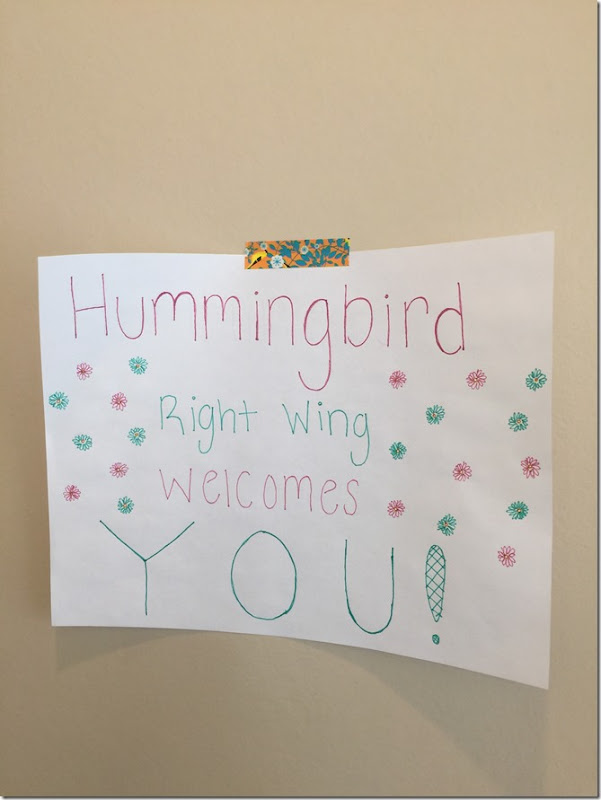 Hummingbird
Right Wing
Welcomes
YOU!